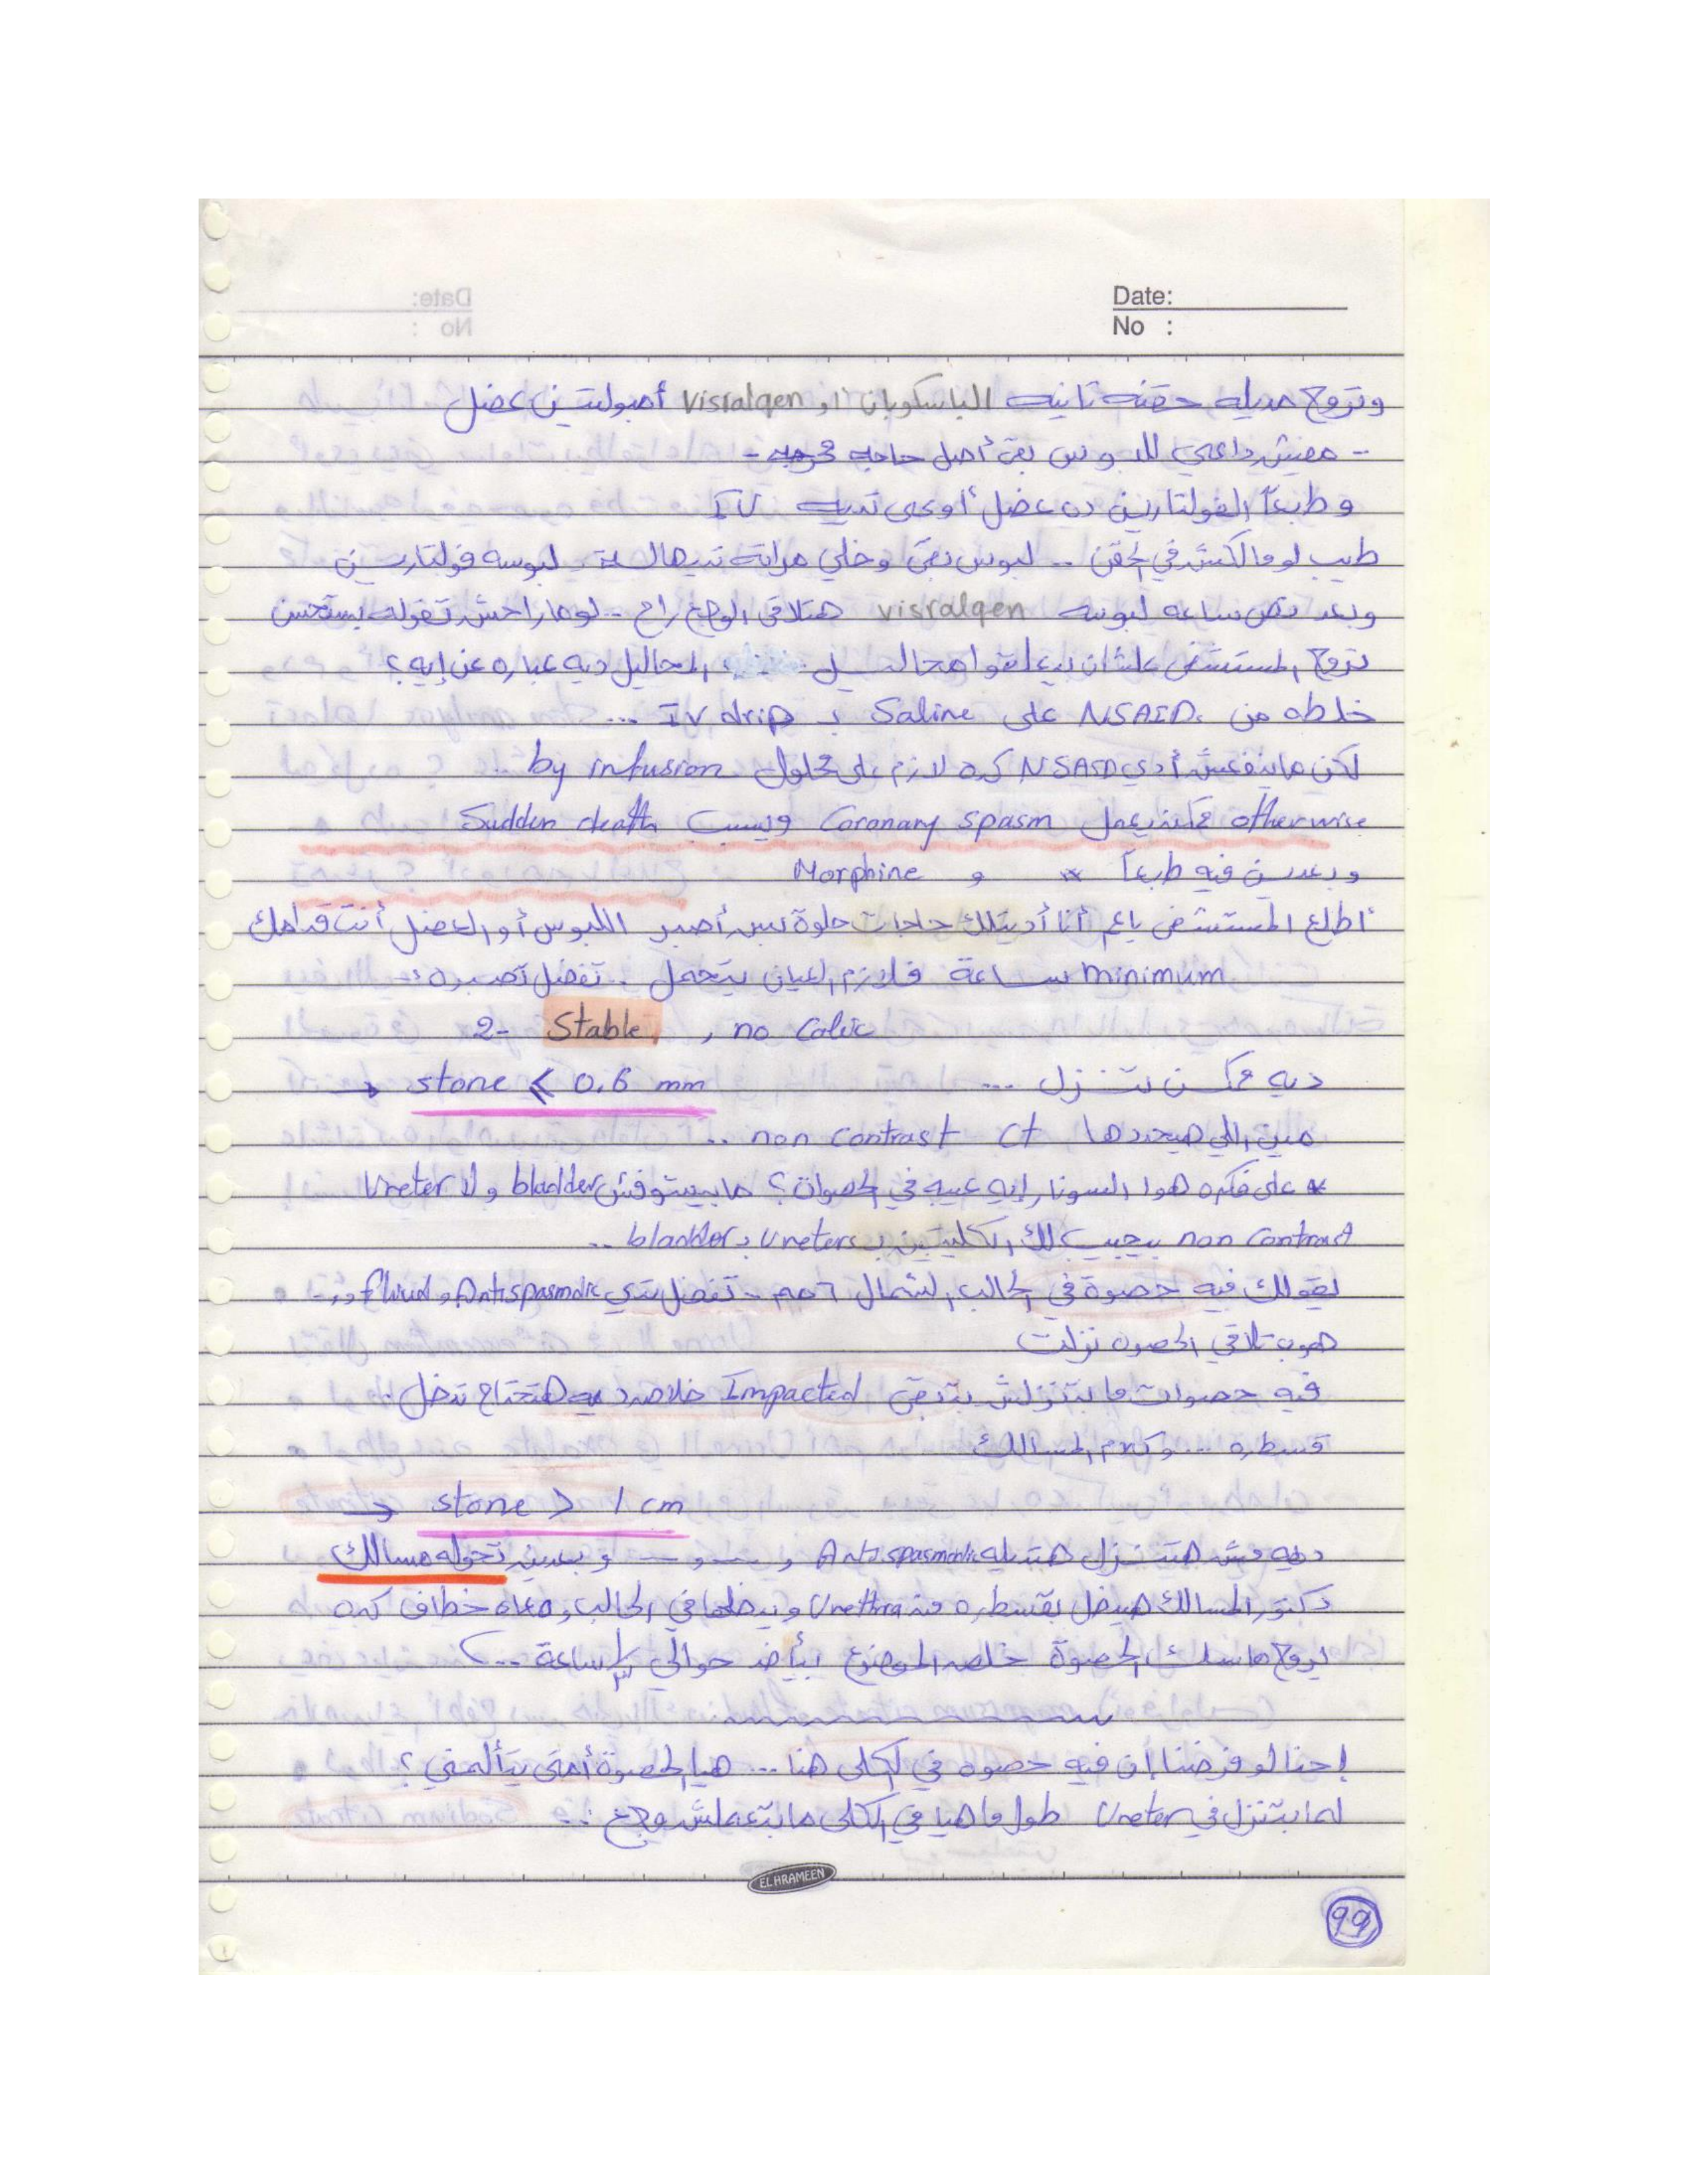 Date:
No :
وتروح مديله حقنه تانيه الباسكوبان او Visralgen أمبولتين عضل
- مفيش داعي للبوس بقى أصل حاجه محرجه -
و طبعاً الفولتارين ده عضل أوعى تديه IV
طيب لو مالكش في الحقن .. لبوس بقى وخلي مراته تديهاله لبوسه فولتارين
وبعد نص ساعه لبوسه visralgen هتلاقي الوجع راح .. لو ماراحش تقوله يستحسن
تروح المستشفى علشان يعلقوا محاليل ... المحاليل ديه عباره عن إيه؟
خلطه من NSAID على Saline بـ IV drip ...
لكن ماينفعش أدي NSAID كده لازم على محلول by infusion ..
otherwise ممكن يعمل Coronary spasm ويسبب Sudden death
وبعدين فيه طبعاً و Morphine
أطلع المستشفى ياعم أنا أديتلك حاجات حلوة بس أصبر اللبوس أو العضل أنت قدامك
minimum ساعة فلازم العيان يتحمل . تفضل تصبره
2- Stable , no Colic
→ stone ⩽ 0.6 mm ديه ممكن تنزل ...
مين اللي هيحددها non contrast Ct ..
* على فكره هوا السونار إيه عيبه في الحصوات؟ مابيشوفش bladder ولا Ureter
non contrast يجيب لك الكليتين بـ Ureters بـ bladder ..
يقولك فيه حصوة في الحالب الشمال ٦مم .. تفضل تدي Antispasmodic و fluid و..
هوب تلاقي الحصوه نزلت
فيه حصوات مابتنزلش بتبقى Impacted خلاص ديه هتحتاج تدخل .
قسطره .... وكلام المسالك
→ stone > 1 cm
ديه مش هتنزل هتديله Antispasmodic و — و — وبعدين تحوله مسالك
دكتور المسالك هيدخل بقسطره من Urethra ويدخلها في الحالب ومعاه خطاف كده
يروح ماسك الحصوة خلص الموضوع بيأخد حوالي ١/٣ ساعة ..
إحنا لو فرضنا إن فيه حصوه في الكلى هنا ... هيا الحصوة أمتى بتألمني ؟
لما بتنزل في Ureter طول ما هيا في الكلى مابتعملش وجع ..
EL HRAMEEN
99